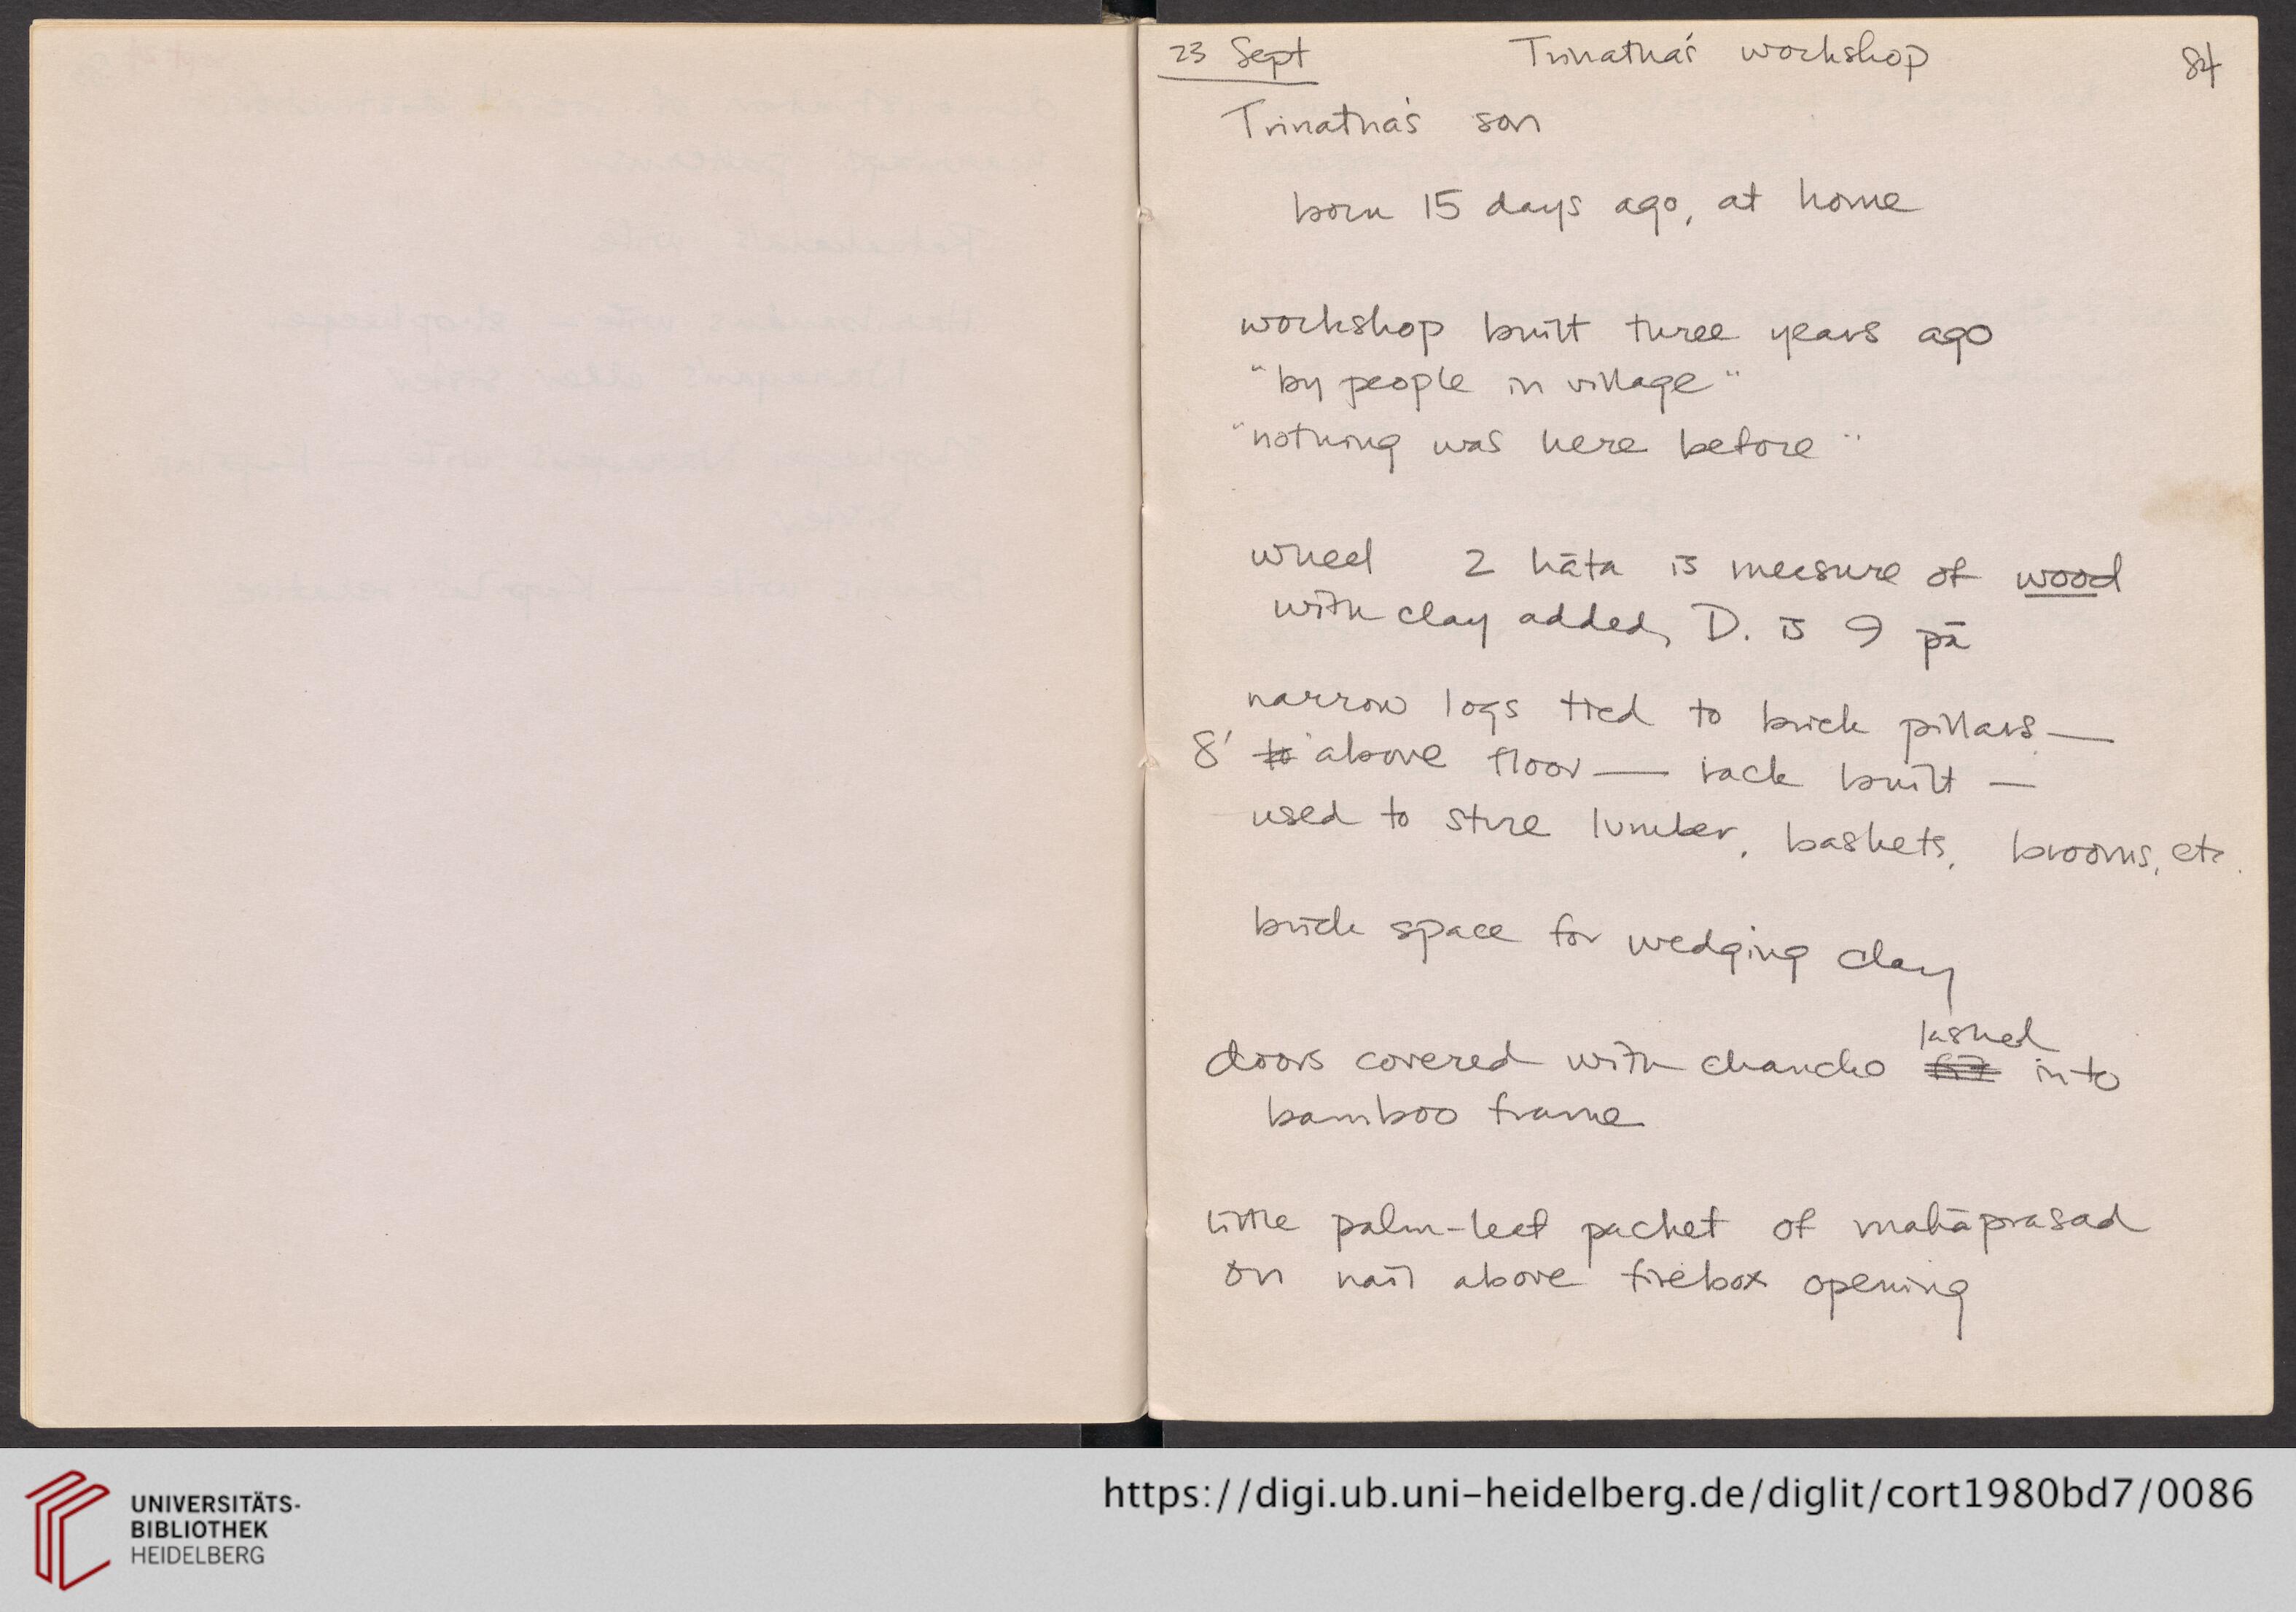 23 Sept Trinatha's workshop 84
Trinatha's son
born 15 days ago, at home
workshop built three years ago
"by people in village"
"nothing was here before"
wheel 2 hāta is measure of wood
with clay added, D. is 9 pā
narrow logs tied to brick pillars —
8' to above floor — rack built —
used to store lumber, baskets, brooms, etc.
brick space for wedging clay
lashed
doors covered with chancho fit into
bamboo frame
little palm-leaf packet of mahāprasad
on nail above firebox opening
UNIVERSITÄTS-
BIBLIOTHEK
HEIDELBERG
https://digi.ub.uni-heidelberg.de/diglit/cort1980bd7/0086